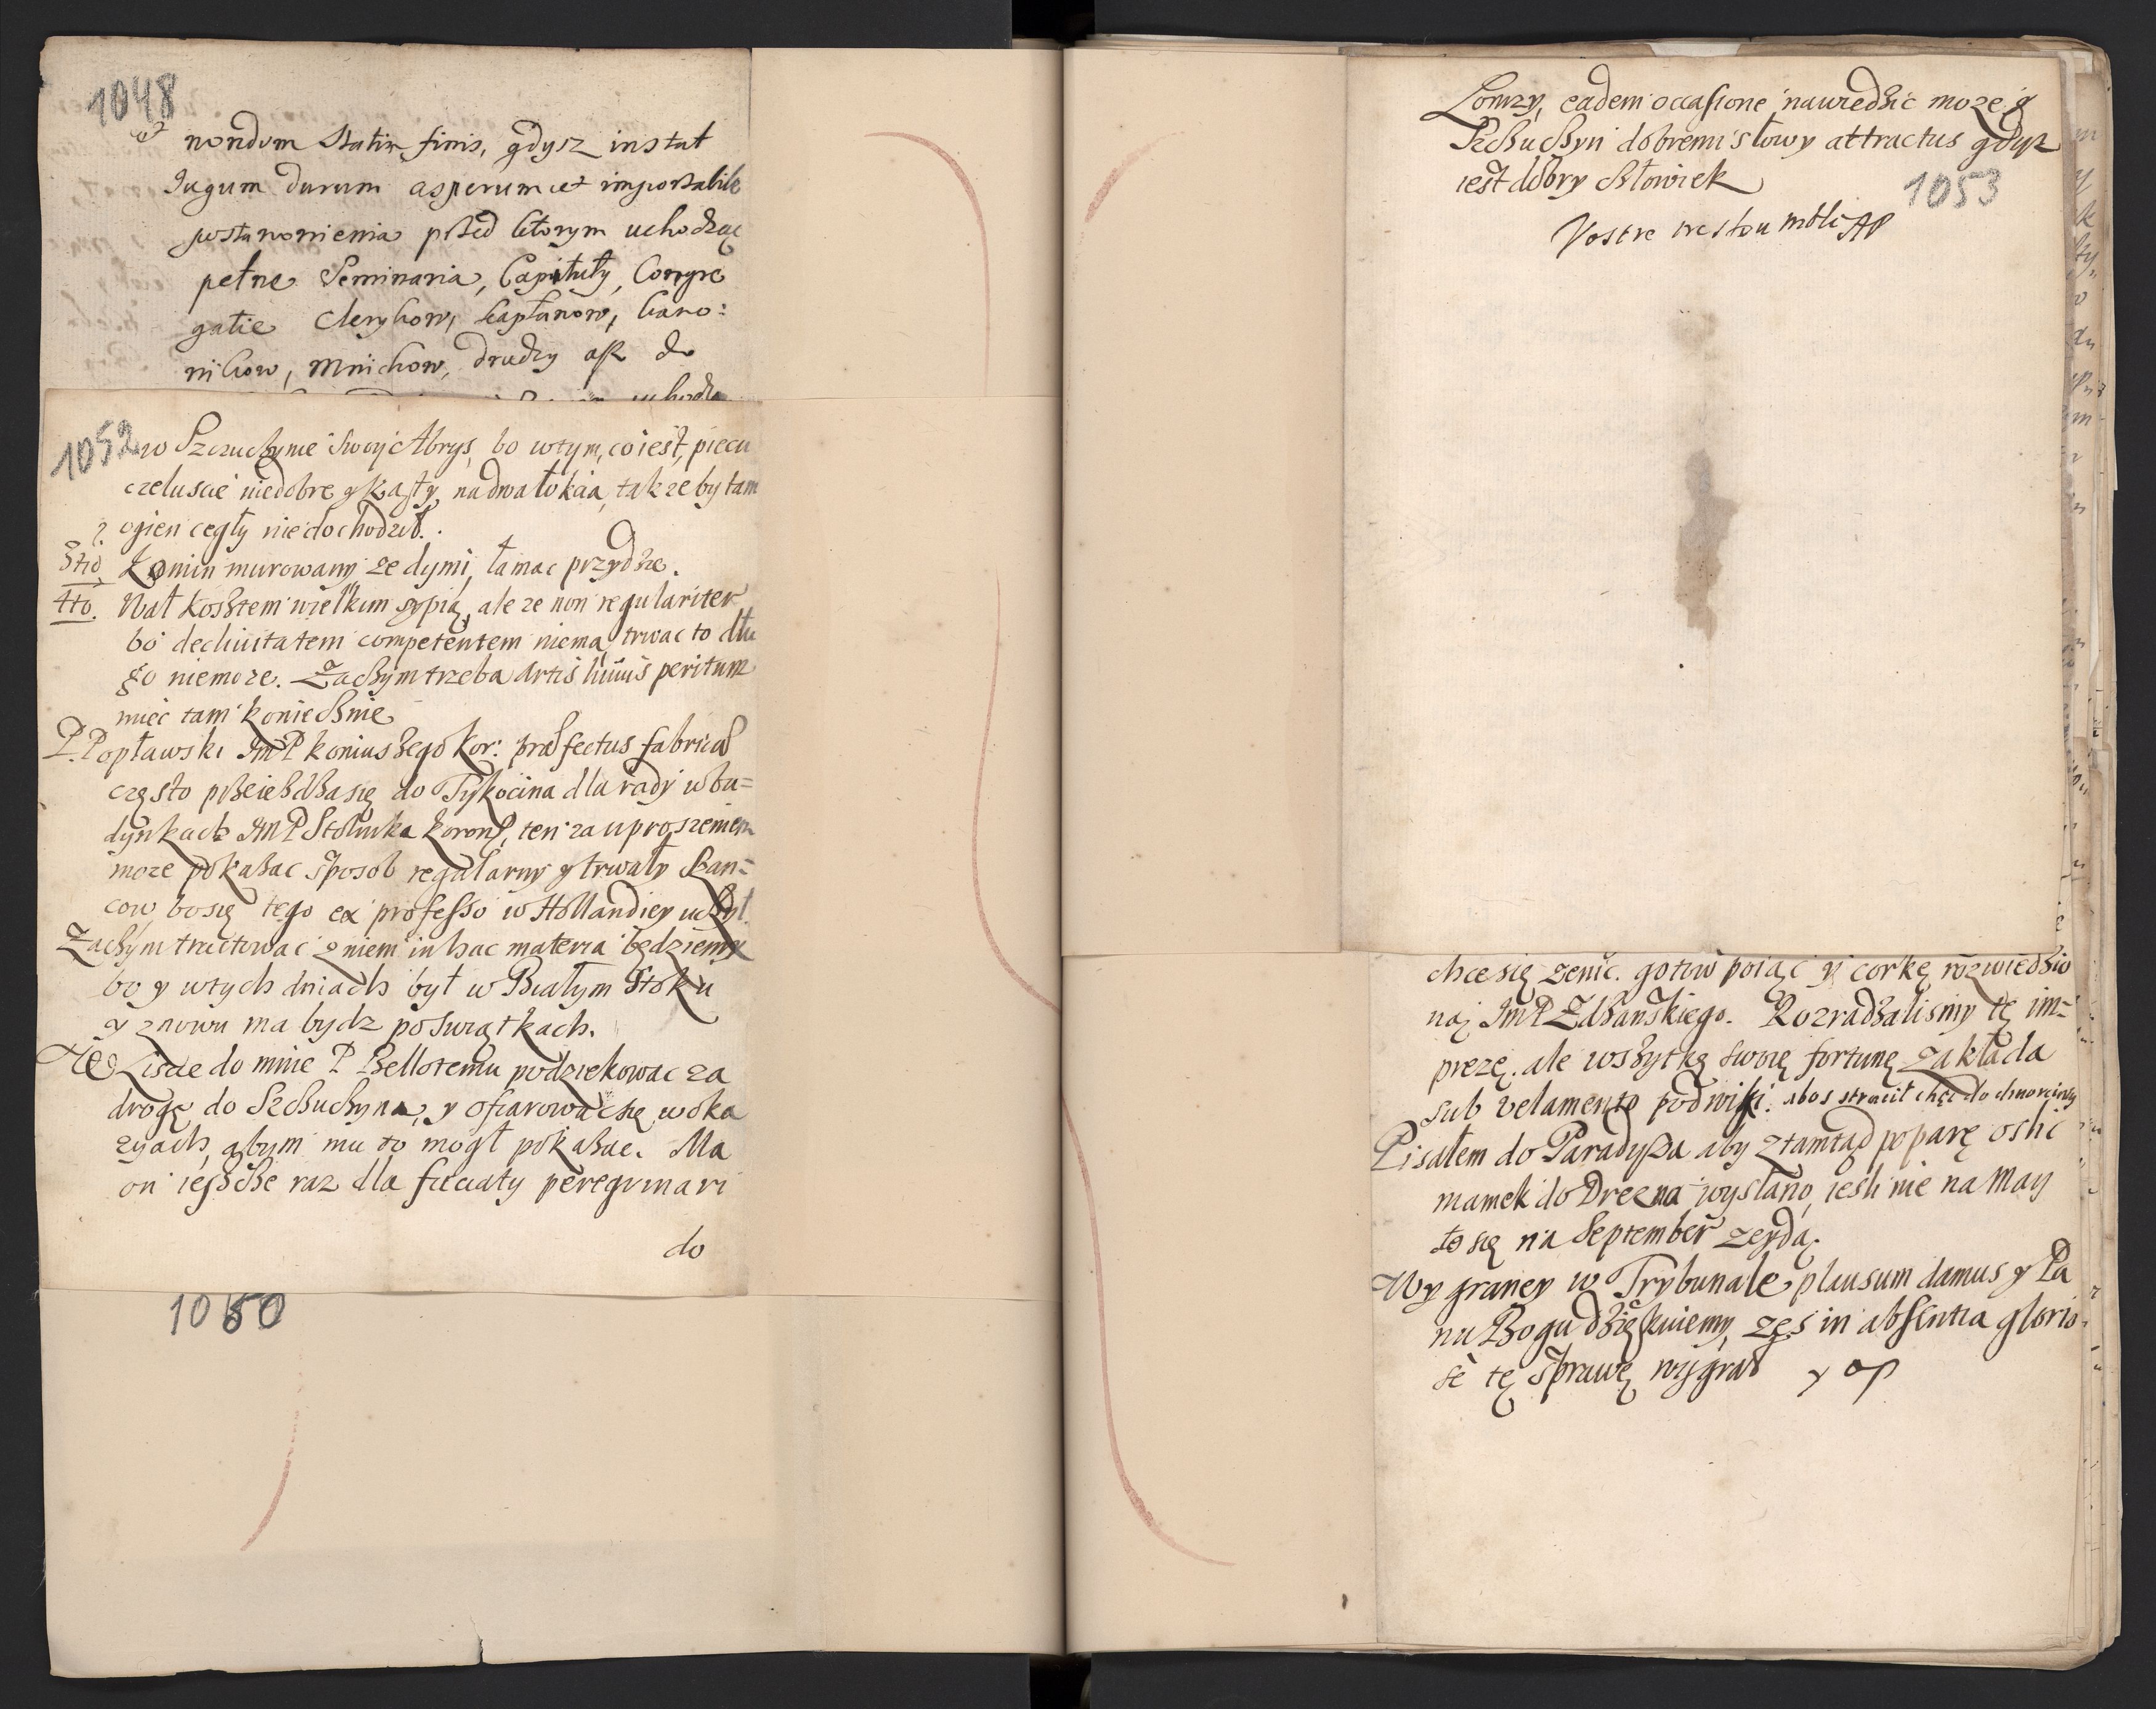 1048
et nondum statim finis, gdysz instat
Iugum durum asperum et importabile
postanowienia przed ktorym uchodząc
pełne Seminaria, Capituły, Congre
gatie Clerykow, kapłanow, kano:
nikow, Mnichow, drudzy asz do
1052
w Szczuczynie swoy Abrys, bo wtym, co iest, piecu
czeluscie niedobre y kąsty, na dwa łokcia, tak ze by tam
ogien cegły nie dochodził.
3tio Komin murowany ze dymi, łamac przydzie.
4to. Wał kosztem wielkim sypią, ale ze non regulariter
bo declivitatem competentem niema, trwac to dłu
go niemoze. Zaczym trzeba Artis huius peritum
miec tam koniecznie
P. Popławski JmP koniuszego Kor: præfectus fabricæ
często przeiezdza się do Tykocina dla rady w bu=
dynkach JmP Stolnika Koronf, ten za uproszeniem
moze pokazac sposob regularny y trwały szan=
cow, bo się tego ex professo w Hollandiey uczył.
Zaczym tractowac z niem in hac materia będziemy
bo y w tych dniach był w Białym Stoku
y znowu ma bydz po swiątkach.
Liscie do mnie P Bellotemu podziekowac za
drogę do Szczuczyna, y ofiarowac się w oka
zyach, abym mu to mogł pokazac. Ma
on ieszcze raz dla facciaty peregrinari
do
1050
Łomzy, eadem occasione nawiedzic moze y
Szczuczyn dobremi słowy attractus gdyz
iest dobry człowiek
1053
Vostre AP
chce się zenic. gotow poiąc y corkę rozwiedzio
ną JmP Zdzanskiego. Rozradzalismy tę im=
prezę. ale wszytkę swoię fortunę zakłada
sub velamento podwiki. abos stracił chęc do
Pisałem do Paradyza aby ztamtąd po parę oslic
mamek do Drezna wysłano, iesli nie na May
to się na September zeydą.
Wygraney w Trybunale plausum damus y Pa
nu Bogu dziękuiemy, zes in absentia glorio:
se tę sprawę wygrał y